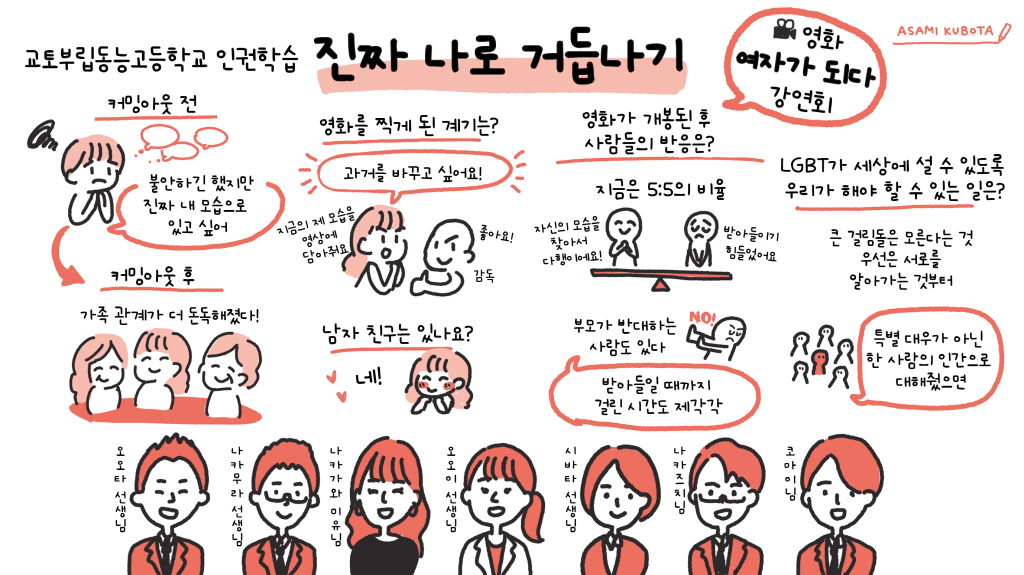 교토부립동능고등학교 인권학습
진짜 나로 거듭나기
영화
여자가 되다
강연회
ASAMI KUBOTA
커밍아웃 전
불안하긴 했지만
진짜 내 모습으로
있고 싶어
커밍아웃 후
가족 관계가 더 돈독해졌다!
영화를 찍게 된 계기는?
과거를 바꾸고 싶어요!
지금의 제 모습을
영상에
담아줘요
좋아요!
감독
남자 친구는 있나요?
네!
영화가 개봉된 후
사람들의 반응은?
지금은 5:5의 비율
자신의 모습을
찾아서
다행이에요!
받아들이기
힘들었어요
부모가 반대하는
사람도 있다
NO!
받아들일 때까지
걸린 시간도 제각각
LGBT가 세상에 설 수 있도록
우리가 해야 할 수 있는 일은?
큰 걸림돌은 모른다는 것
우선은 서로를
알아가는 것부터
특별 대우가 아닌
한 사람의 인간으로
대해줬으면
오오타 선생님
나카무라 선생님
나카가와 미유님
오오이 선생님
시바타 선생님
나카즈치님
코마이님